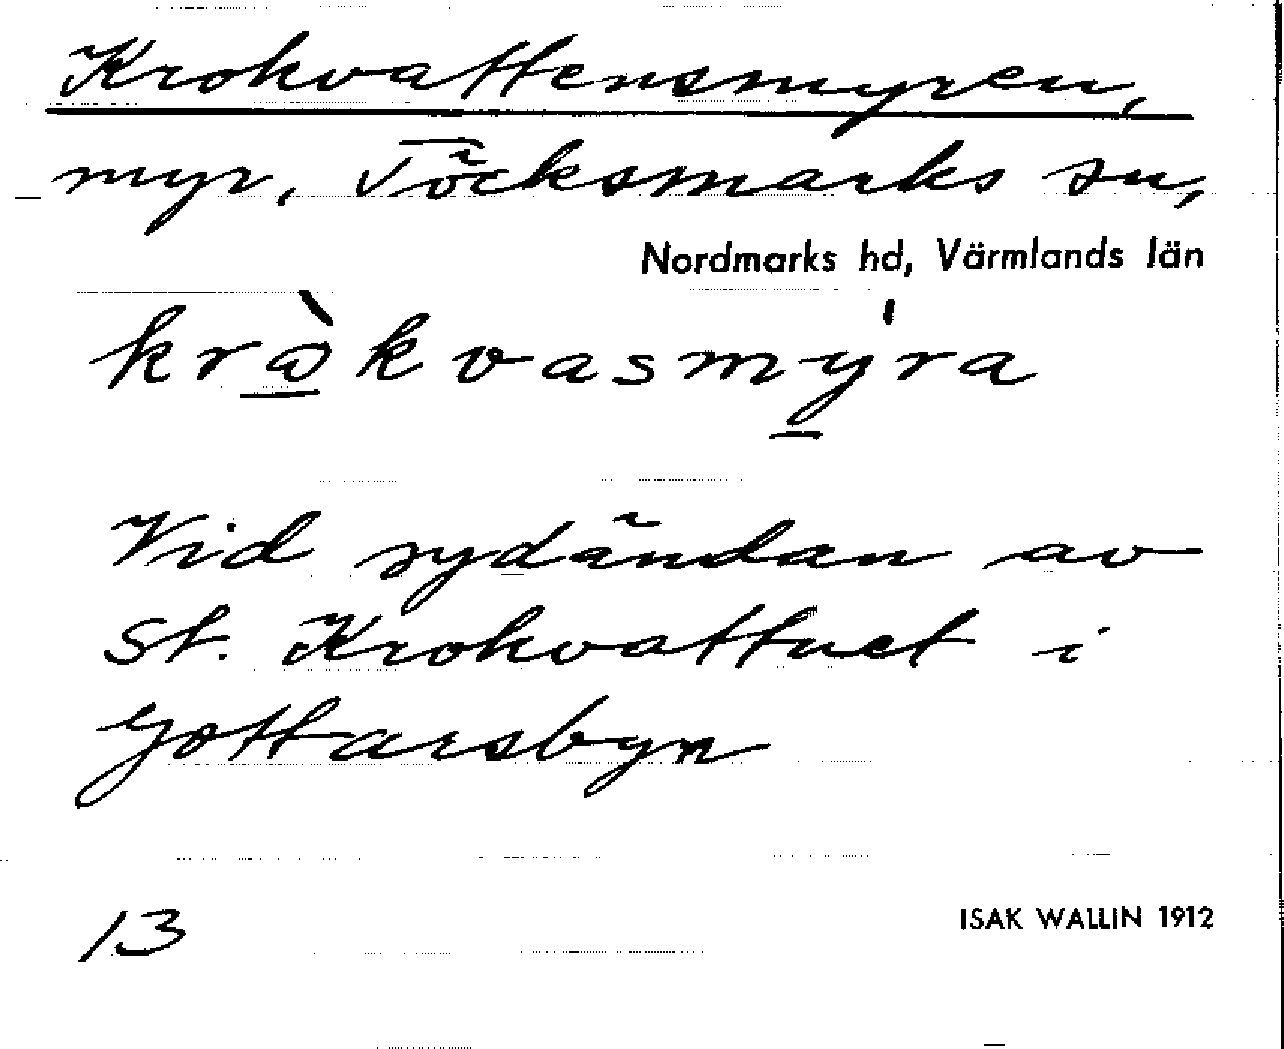 Krokvattensmyren,
myr, Töcksmarks sn,
Nordmarks hd, Värmlands län
kròkvasmy̍ra
Vid sydändan av
St. Krokvattnet i
Gottarsbyn
13
ISAK WALLIN 1912